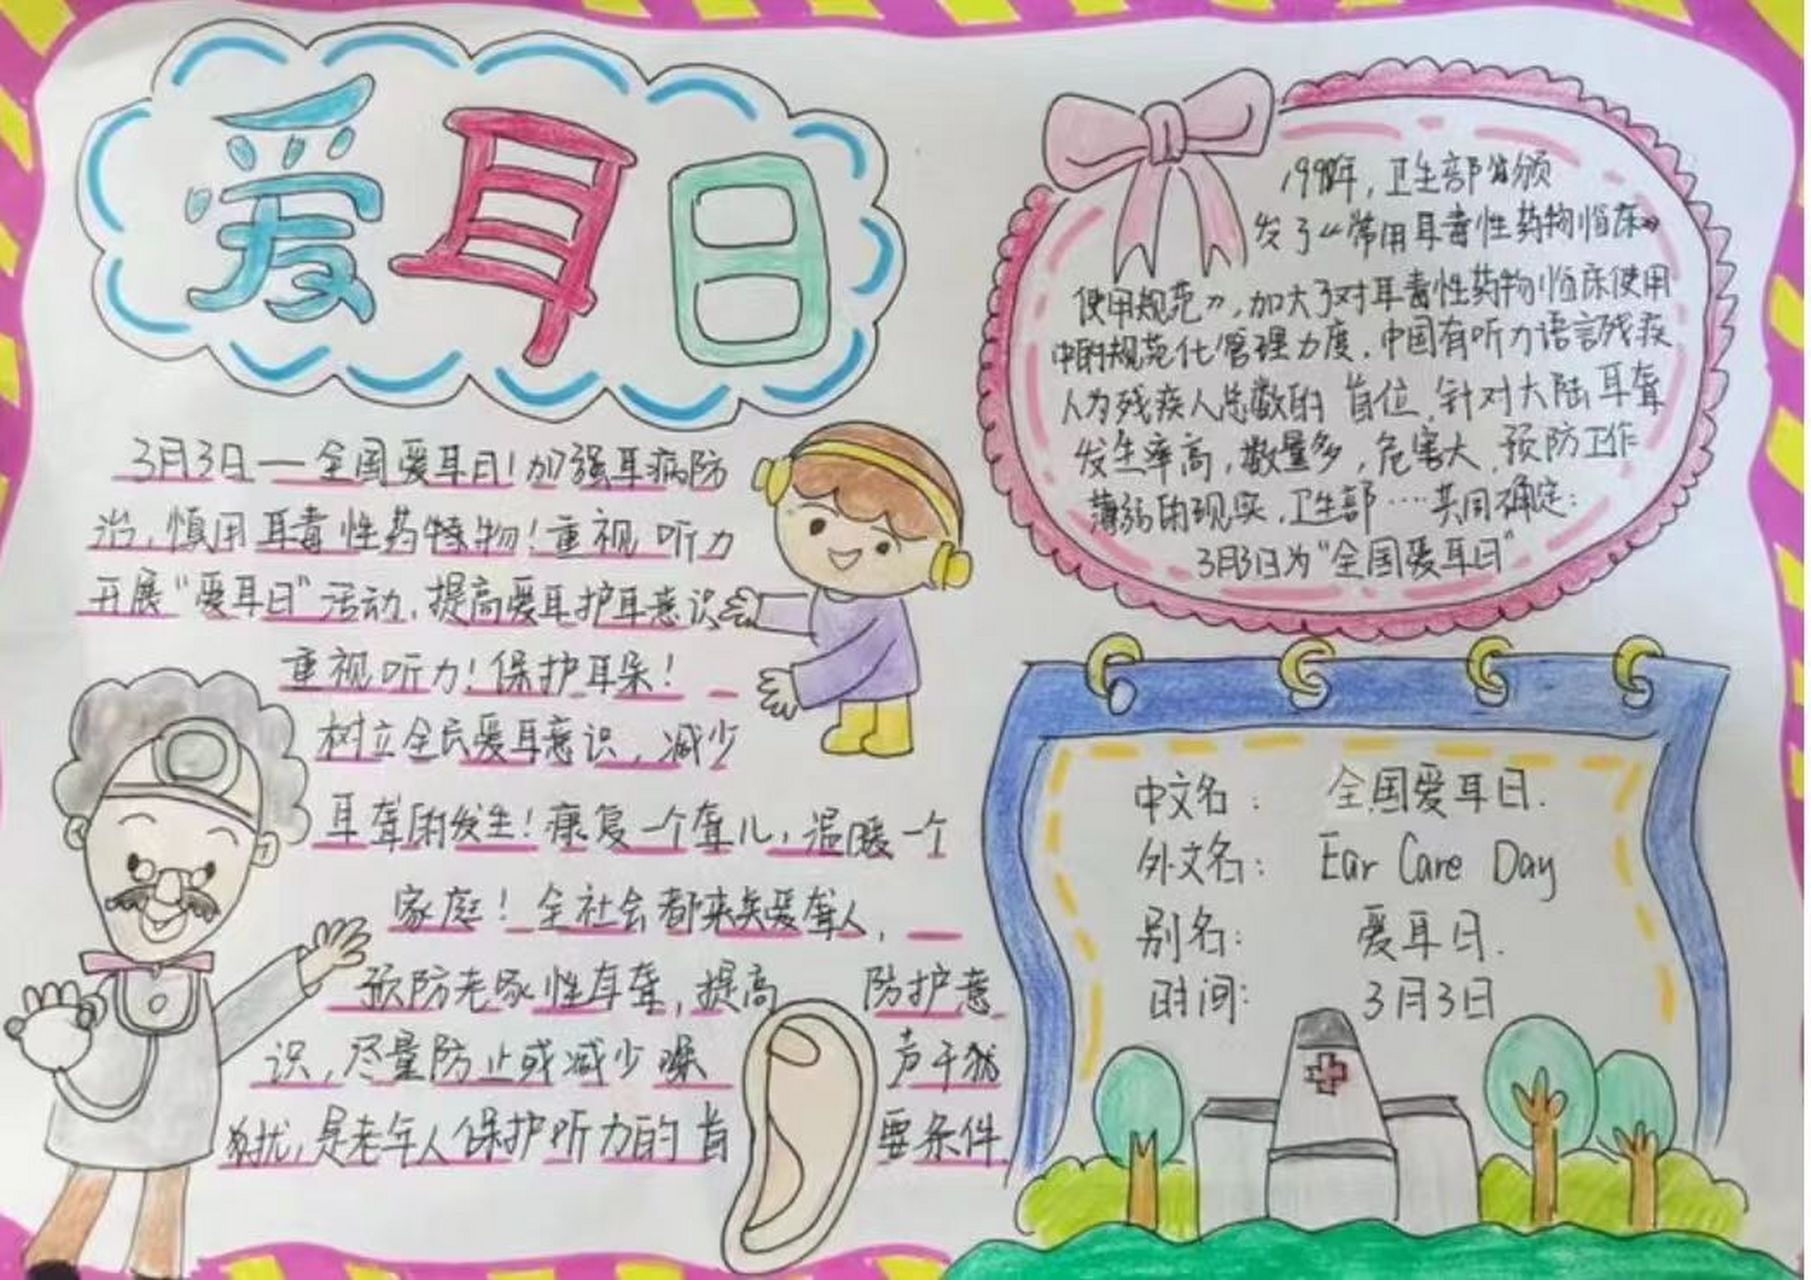 爱耳日
3月3日—全国爱耳日!加强耳病防
治,慎用耳毒性药物!重视听力
开展“爱耳日”活动,提高爱耳护耳意识
重视听力!保护耳朵!
树立全民爱耳意识,减少
耳聋的发生!康复一个聋儿,温暖一个
家庭!全社会都来关爱聋人,
预防老年性耳聋,提高 防护意
识,尽量防止或减少噪 声干扰
扰,是老年人保护听力的首 要条件.
年,卫生部颁
发了《常用耳毒性药物临床》
使用规范》,加大了对耳毒性药物临床使用
中的规范化管理力度.中国有听力语言残疾
人为残疾人总数的首位,针对大陆耳聋
发生率高,数量多,危害大,预防工作
薄弱的现实,卫生部····共同确定:
3月3日为“全国爱耳日”
中文名: 全国爱耳日.
外文名: Ear Care Day
别名: 爱耳日.
时间: 3月3日